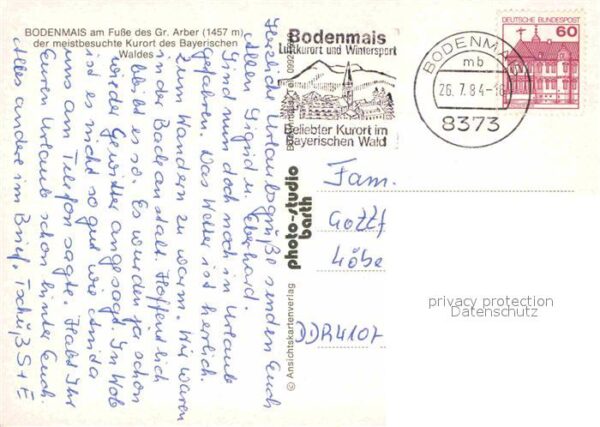 BODENMAIS am Fuße des Gr. Arber (1457 m)
der meistbesuchte Kurort des Bayerischen
Waldes
Herzliche Urlaubsgrüße senden Euch
Allen Sigrid u. Eberhard.
Sind nun doch noch in Urlaub
gefahren. Das Wetter ist herrlich.
Zum Wandern zu warm. Wir waren
in der Badeanstalt. Hoffentlich
bleibt es so. Es wurden ja schon
wieder Gewitter angesagt. In
ist es nicht so gut wie
uns am Telefon sagte. Habt Ihr
Euren Urlaub schon hinter Euch.
Alles andere im Brief. Tschüß S + E
Bodenmais
Luftkurort und Wintersport
Beliebter Kurort im
Bayerischen Wald
BODENMAIS
mb
26.7.84-18
8373
DEUTSCHE BUNDESPOST
60
photo-studio
barth
© Ansichtskartenverlag
Fam.
Gottf
Löbe
DDR 4107
privacy protection
Datenschutz